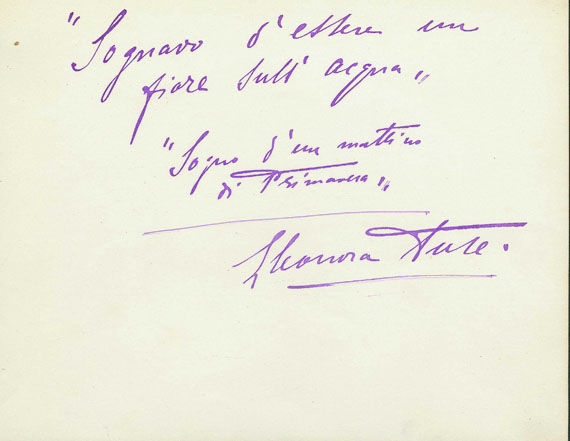 "Sognavo d'essere un
fiore sull' acqua„
"Sogno d'un mattino
di Primavera„
Eleonora Duse.